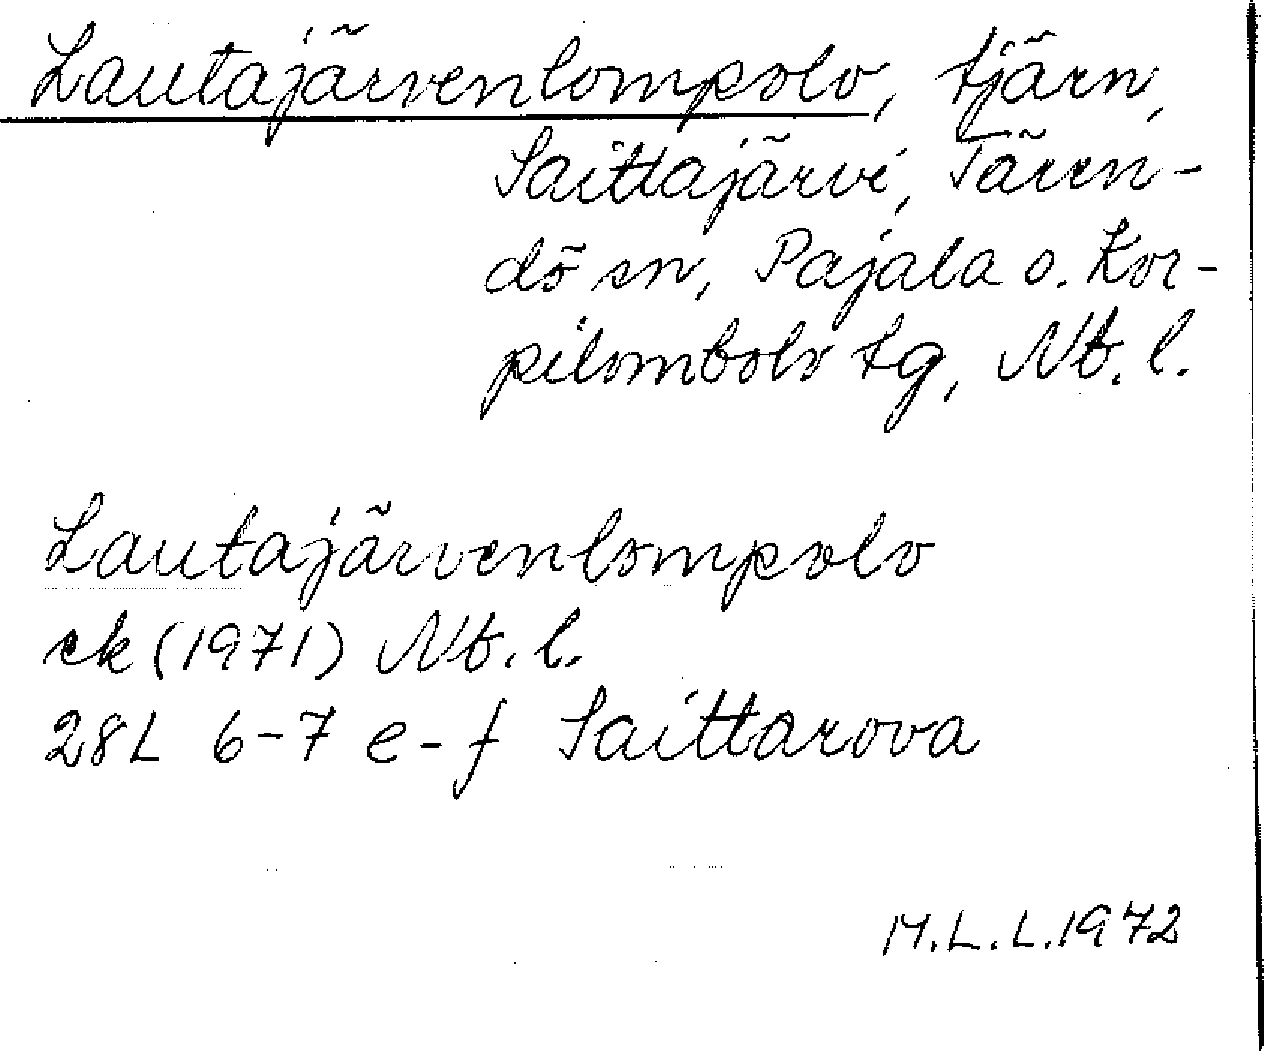 Lautajärvenlompolo, tjärn,
Saittajärvi, Tären-
dö sn, Pajala o. Kor-
pilombolo tg, Nb. l.
Lautajärvenlompolo
ek (1971) Nb. l.
28L 6-7 e-f Saittarova
M.L.L.1972